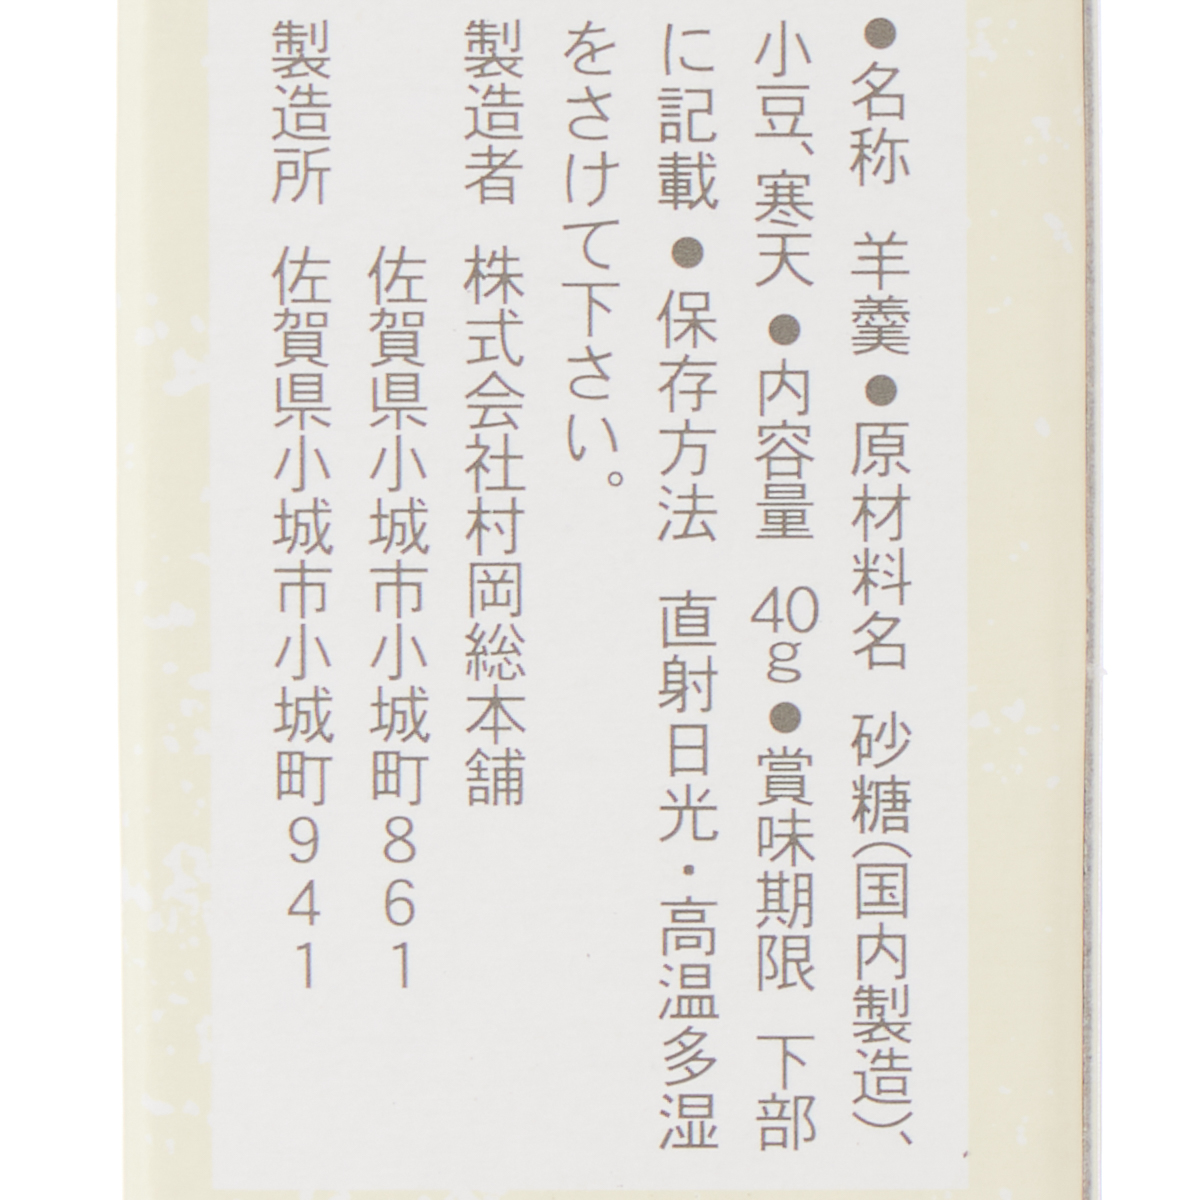 ●名称 羊羹●原材料名 砂糖(国内製造)、
小豆、寒天●内容量 40g●賞味期限 下部
に記載●保存方法 直射日光・高温多湿
をさけて下さい。
製造者 株式会社村岡総本舗
佐賀県小城市小城町861
製造所 佐賀県小城市小城町941